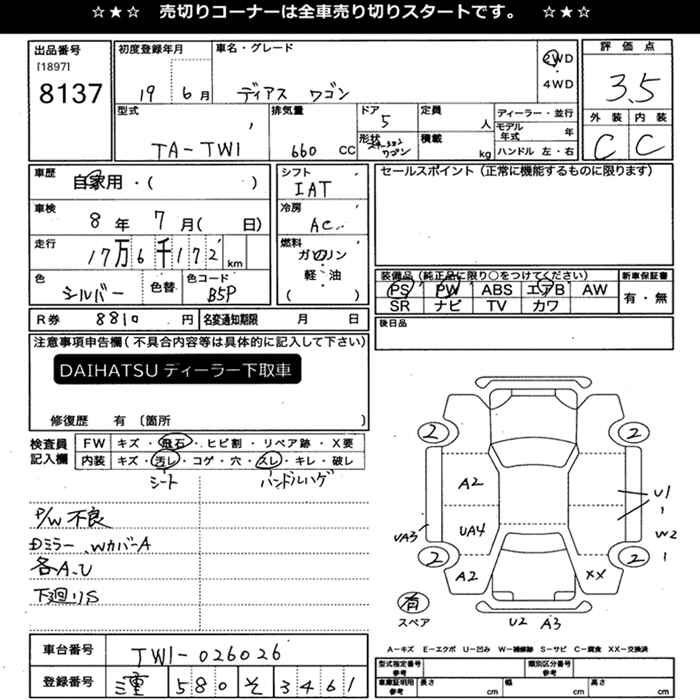 ☆★☆ 売切りコーナーは全車売り切りスタートです。 ☆★☆
出品番号
[1897]
8137
初度登録年月
19 6月
車名・グレード
ディアス ワゴン
2WD
4WD
評価点
3.5
外装 内装
C C
型式
TA-TW1
排気量
660 CC
ドア
5
形状
ワゴン
定員
人
積載
kg
ディーラー・並行
モデル年式 年
ハンドル 左・右
車歴
自家用・( )
車検
8年 7月( 日)
走行
17万6千172km
色
シルバー
色替
色コード
B5P
シフト
IAT
冷房
AC
燃料
ガソリン
軽・油
( )
セールスポイント(正常に機能するものに限ります)
装備品(純正品に限り○をつけてください)
PS PW ABS エアB AW
SR ナビ TV カワ
新車保証書
有・無
R券 8810円
名変通知期限 月 日
後日品
注意事項申告欄(不具合内容等は具体的に記入して下さい)
DAIHATSU ディーラー下取車
修復歴 有〔箇所 〕
検査員
記入欄
FW キズ・飛石・ヒビ割・リペア跡・X要
内装 キズ・汚レ・コゲ・穴・スレ・キレ・破レ
シート ハンドルハゲ
P/W 不良
Dミラー、WカバーA
各A、U
下廻りS
2 2
A2
U1
UA4
UA3
W2
2 2
A2 XX
有
スペア
U2 A3
A-キズ E-エクボ U-凹み W-補修跡 S-サビ C-腐食 XX-交換済
車台番号
TW1-026026
登録番号
三重 580 そ 3461
型式指定番号
参考
類別区分番号
参考
車庫証明用
参考
長さ cm
幅 cm
高さ cm